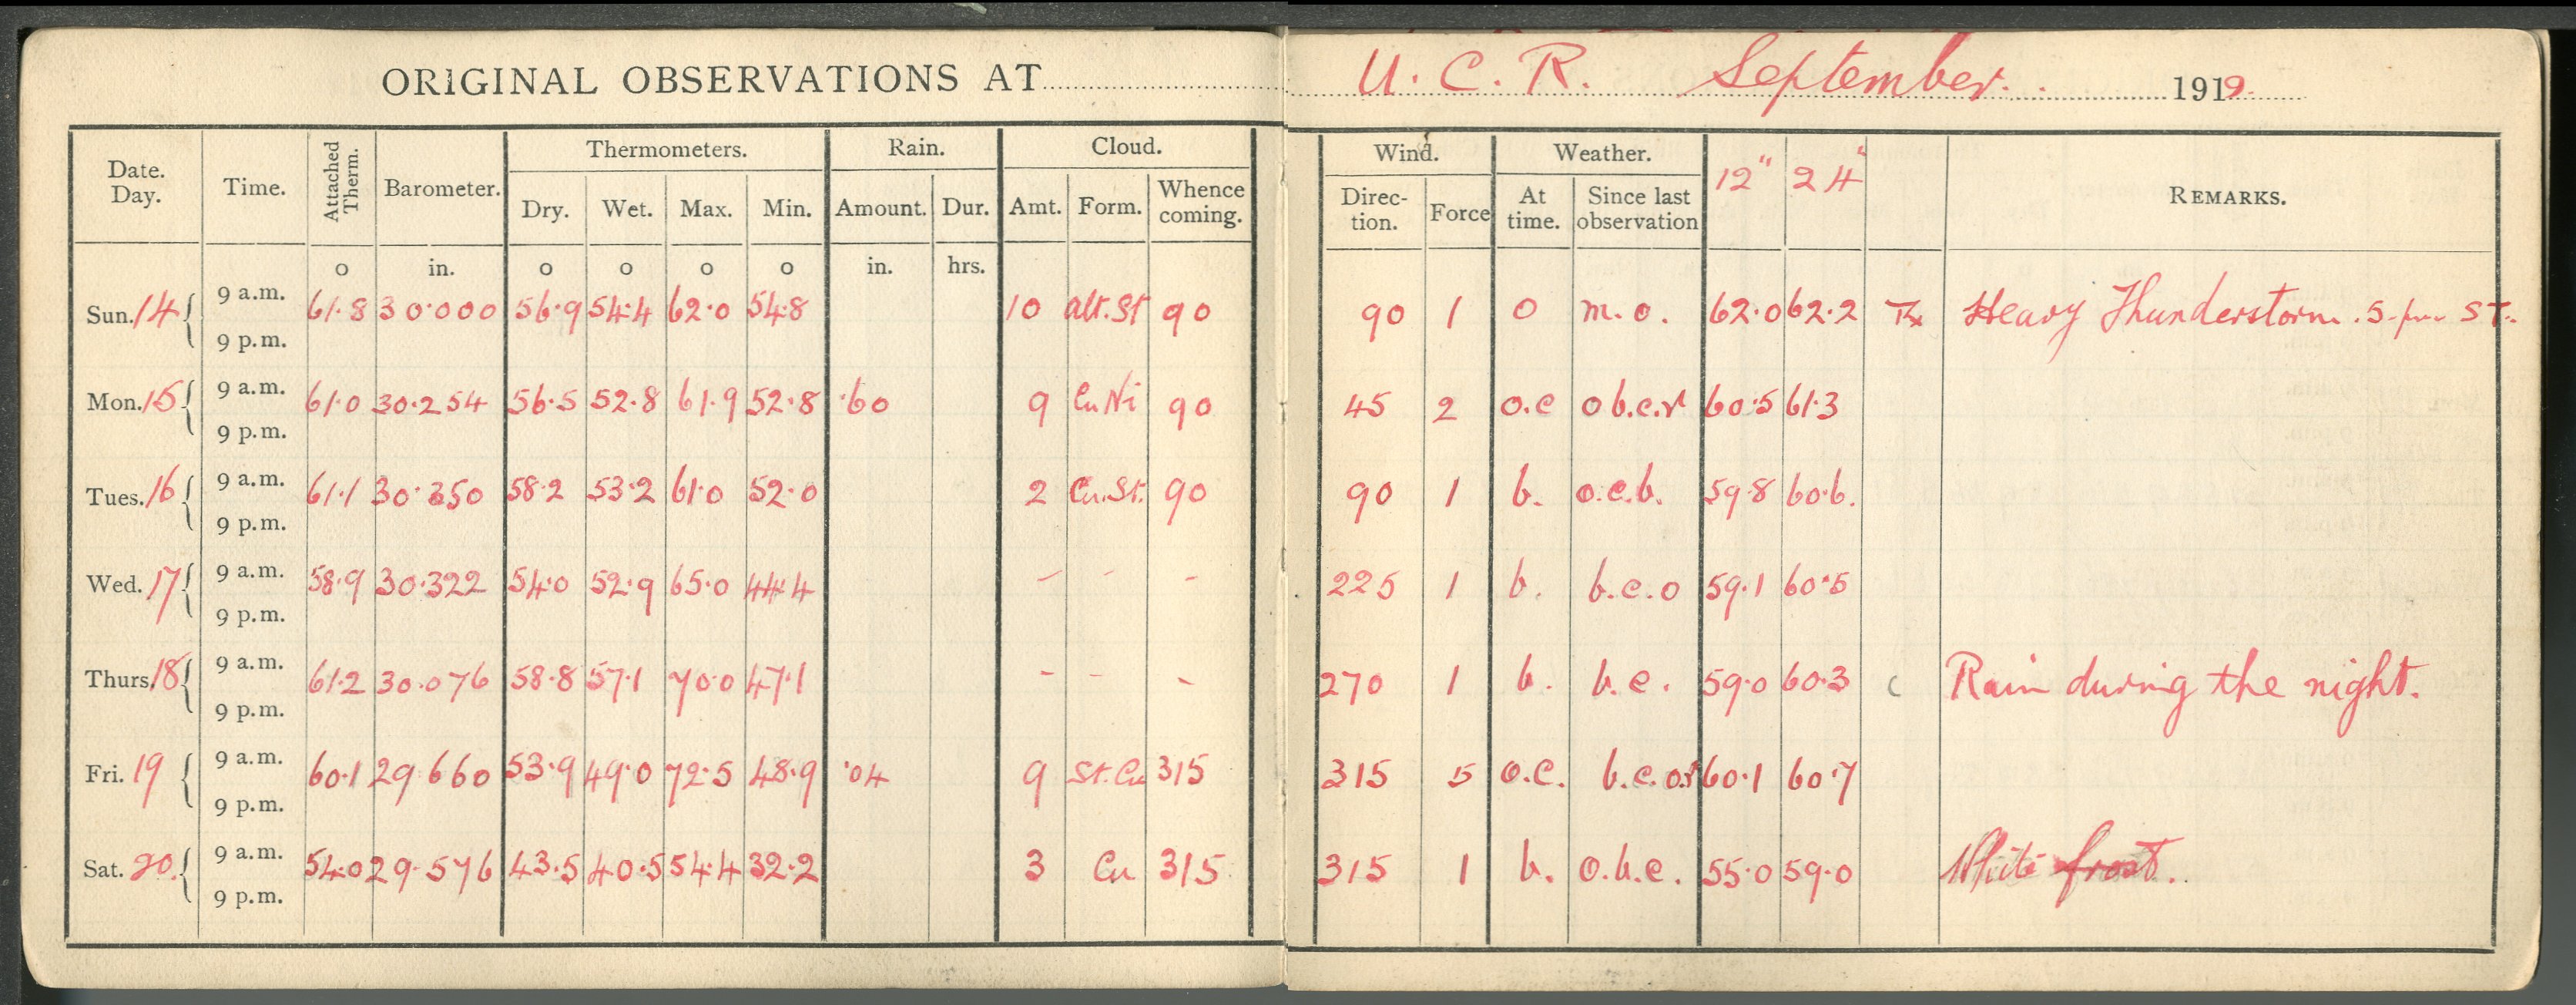 ORIGINAL OBSERVATIONS AT U. C. R. September. 1919
Date. Day. Time. Attached Therm. Barometer. Thermometers. Rain. Cloud. Wind. Weather. 12" 24" REMARKS.
Dry. Wet. Max. Min. Amount. Dur. Amt. Form. Whence coming. Direc-tion. Force At time. Since last observation
o in. o o o o in. hrs.
Sun. 14 9 a.m. 61.8 30.000 56.9 54.4 62.0 54.8 10 alt.St 90 90 1 o m.o. 62.0 62.2 Heavy Thunderstorm. 5 pm S.T.
9 p.m.
Mon. 15 9 a.m. 61.0 30.254 56.5 52.8 61.9 52.8 .60 9 Cu Ni 90 45 2 o.c o b.c.r 60.5 61.3
9 p.m.
Tues. 16 9 a.m. 61.1 30.350 58.2 53.2 61.0 52.0 2 Cu.St. 90 90 1 b. o.c.b. 59.8 60.6.
9 p.m.
Wed. 17 9 a.m. 58.9 30.322 54.0 52.9 65.0 44.4 - - - 225 1 b. b.c.o 59.1 60.5
9 p.m.
Thurs. 18 9 a.m. 61.2 30.076 58.8 57.1 70.0 47.1 - - - 270 1 b. b.c. 59.0 60.3 c Rain during the night.
9 p.m.
Fri. 19 9 a.m. 60.1 29.660 53.9 49.0 72.5 48.9 .04 9 St.Cu 315 315 5 o.c. b.c.o.r 60.1 60.7
9 p.m.
Sat. 20. 9 a.m. 54.0 29.576 43.5 40.5 54.4 32.2 3 Cu 315 315 1 b. o.b.c. 55.0 59.0 White frost.
9 p.m.